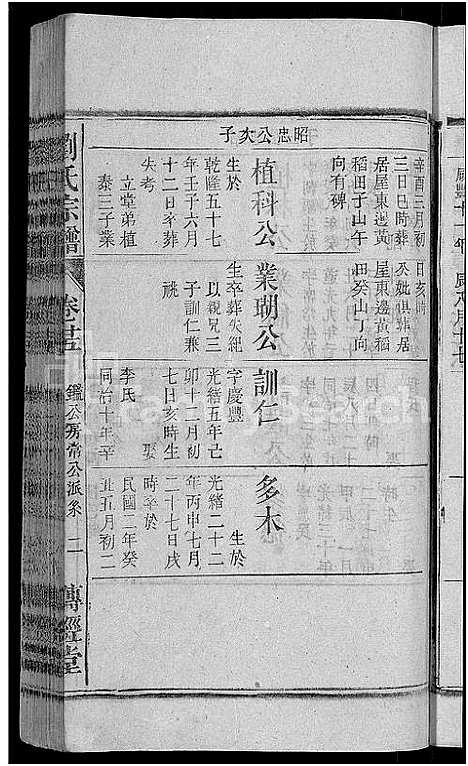 昭忠公次子
辛酉三月初
三日巳時葬
居屋東邊黃
稻田子山午
向有碑
植科公
生於
乾隆五十七
年壬子六月
十二日卒葬
失考
立堂弟植
泰三子業
日亥時
公妣俱葬居
屋東邊黃稻
田癸山丁向
業瑚公
生卒葬失紀
以親兄三
子訓仁兼
祧
訓仁
字慶豐
光緒五年己
卯十二月初
七日亥時生
娶
李氏
同治十年辛
多木
生於
光緒二十二
年丙申七月
二十七日戌
時卒於
民國二年癸
丑五月初二
劉氏宗譜
卷之廿五
鑑公房常公派系
二
傳經堂